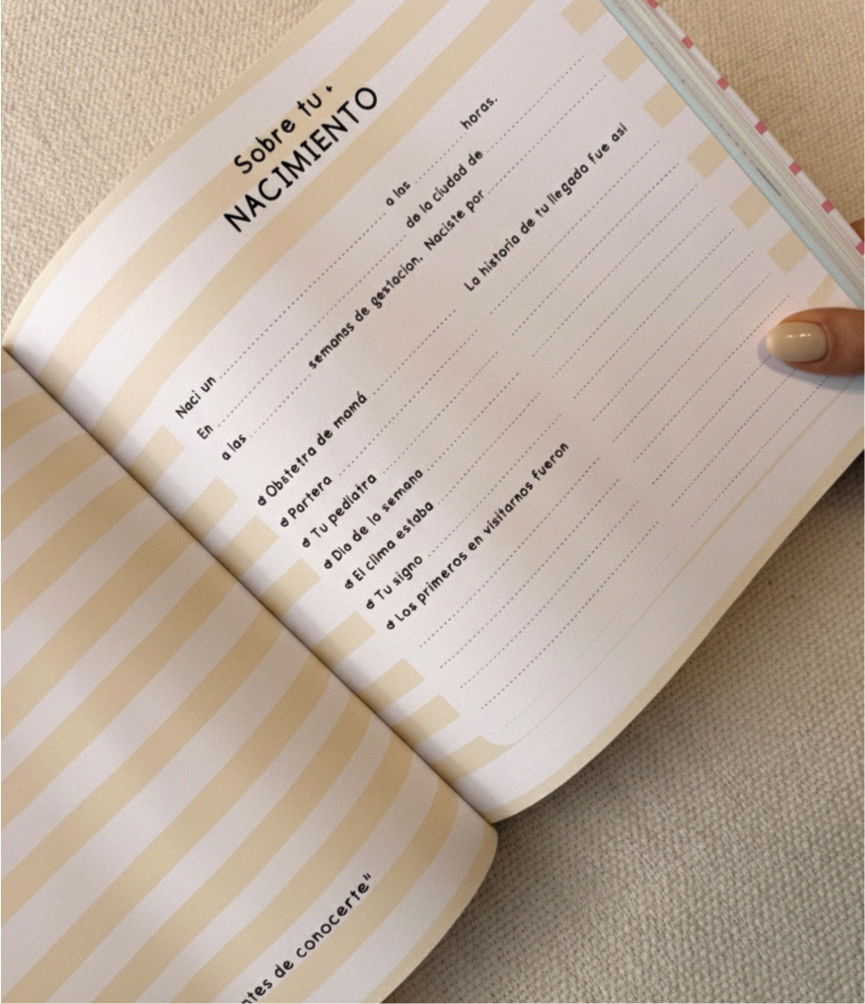 Sobre tu
NACIMIENTO
Naci un a las horas.
En de la ciudad de
a las semanas de gestacion. Naciste por
Obstetra de mamá
Partera
Tu pediatra
Dia de la semana
El clima estaba
Tu signo
Los primeros en visitarnos fueron
La historia de tu llegada fue asi
ntes de conocerte"